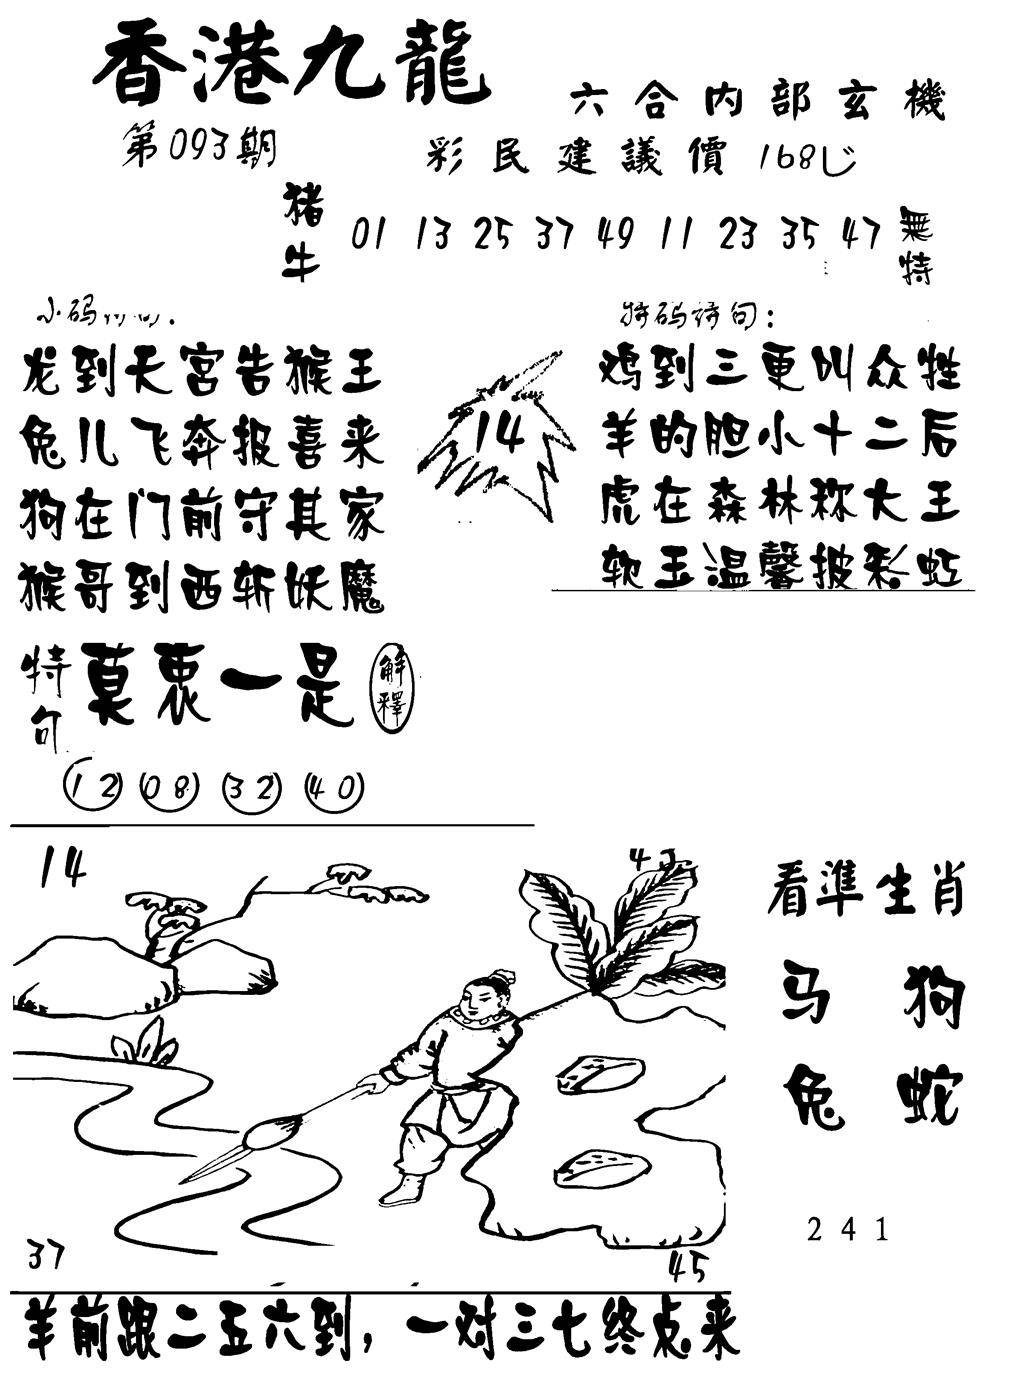 香港九龍
六合内部玄機
第093期
彩民建議價168
猪牛
01 13 25 37 49 11 23 35 47
無特
小码
特码诗句：
龙到天宮告猴王
兔儿飞奔报喜来
狗在门前守其家
猴哥到西斩妖魔
14
鸡到三更叫众牲
羊的胆小十二后
虎在森林称大王
软玉温馨披彩虹
特句
莫衷一是
解釋
12 08 32 40
14
看準生肖
马 狗
兔 蛇
241
37
45
羊前跟二五六到，一对三七终点来